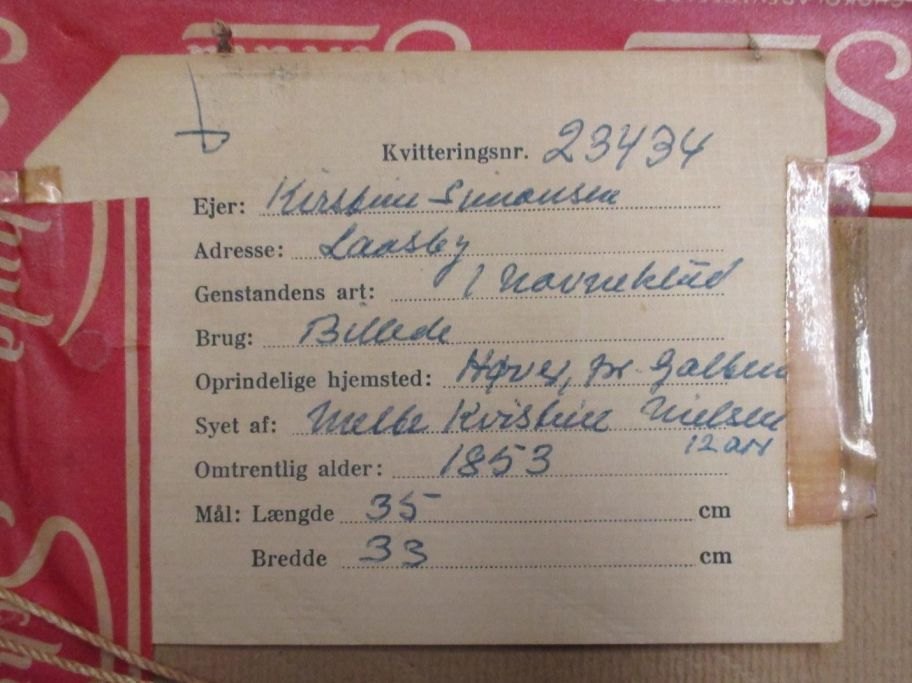 Kvitteringsnr. 23434
Ejer: Kirstine Simonsen
Adresse: Laasby
Genstandens art: 1 Navneklud
Brug: Billede
Oprindelige hjemsted: Høver, pr. Galten
Syet af: Melbe Kristine Nielsen
12 aar
Omtrentlig alder: 1853
Mål: Længde 35 cm
Bredde 33 cm